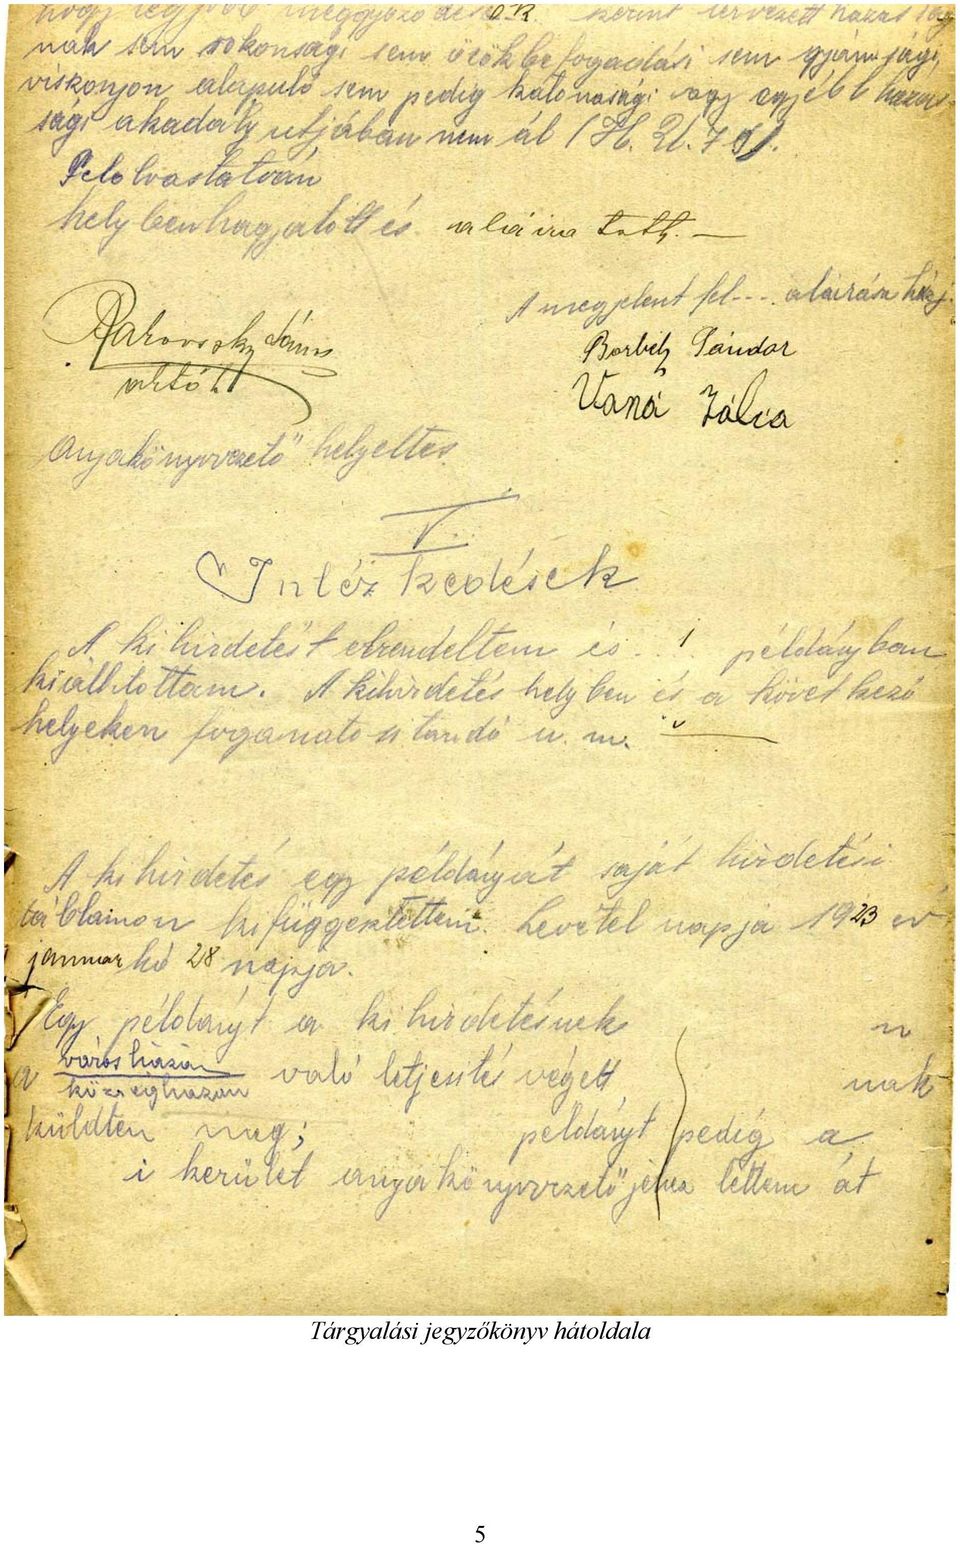 hogy legjobb meggyőződésök szerint tervezett házasság
nak sem rokonsági sem örökbefogadási sem gyámsági,
viszonyon alapuló sem pedig katonasági vagy egyjébb házas
sági akadály utjában nem ál
Felolvastatván
helybenhagyatott és aláira tott. —
A megjelent fel--- aláirása
Rakovszky János
Borbély Sándor
Vaná Júlia
anyakönyvvezető" helyettes
V.
Intézkedések
A kihirdetést elrendeltem és 1 példányban
kiállitottam. A kihirdetés helyben és a következő
helyeken foganatositandó u. m. " —
A kihirdetés egy példányát saját hirdetési
táblámon kifüggesztettem. Levétel napja 1923 év
januar hó 28 napja.
Egy példányt a kihirdetésnek a
a városházán
községházán való létjesités végett nak
küldtem meg; példányt pedig a
i kerület anyakönyvvezető"jéhez tettem át
Tárgyalási jegyzőkönyv hátoldala
5